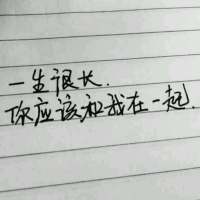 一生很长.
你应该和我在一起.